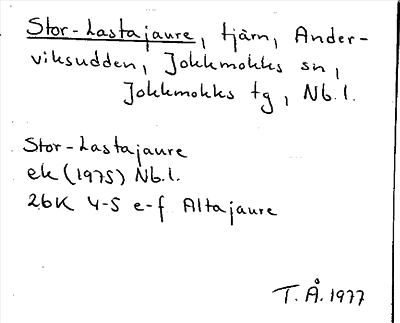 Stor-Lastajaure, tjärn, Ander-
viksudden, Jokkmokks sn,
Jokkmokks tg, Nb.l.
Stor-Lastajaure
ek (1975) Nb.l.
26K 4-5 e-f Altajaure
T.Å. 1977